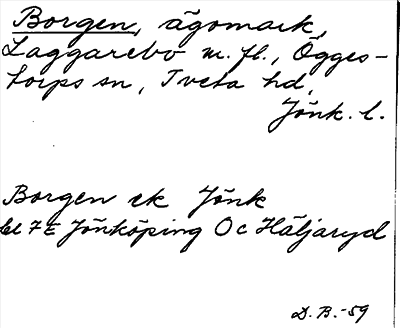 Borgen, ägomark,
Laggarebo m. fl., Ögges-
torps sn, Tveta hd,
Jönk. l.
Borgen ek Jönk
bl 7E Jönköping Oc Häljaryd
D. B. -59